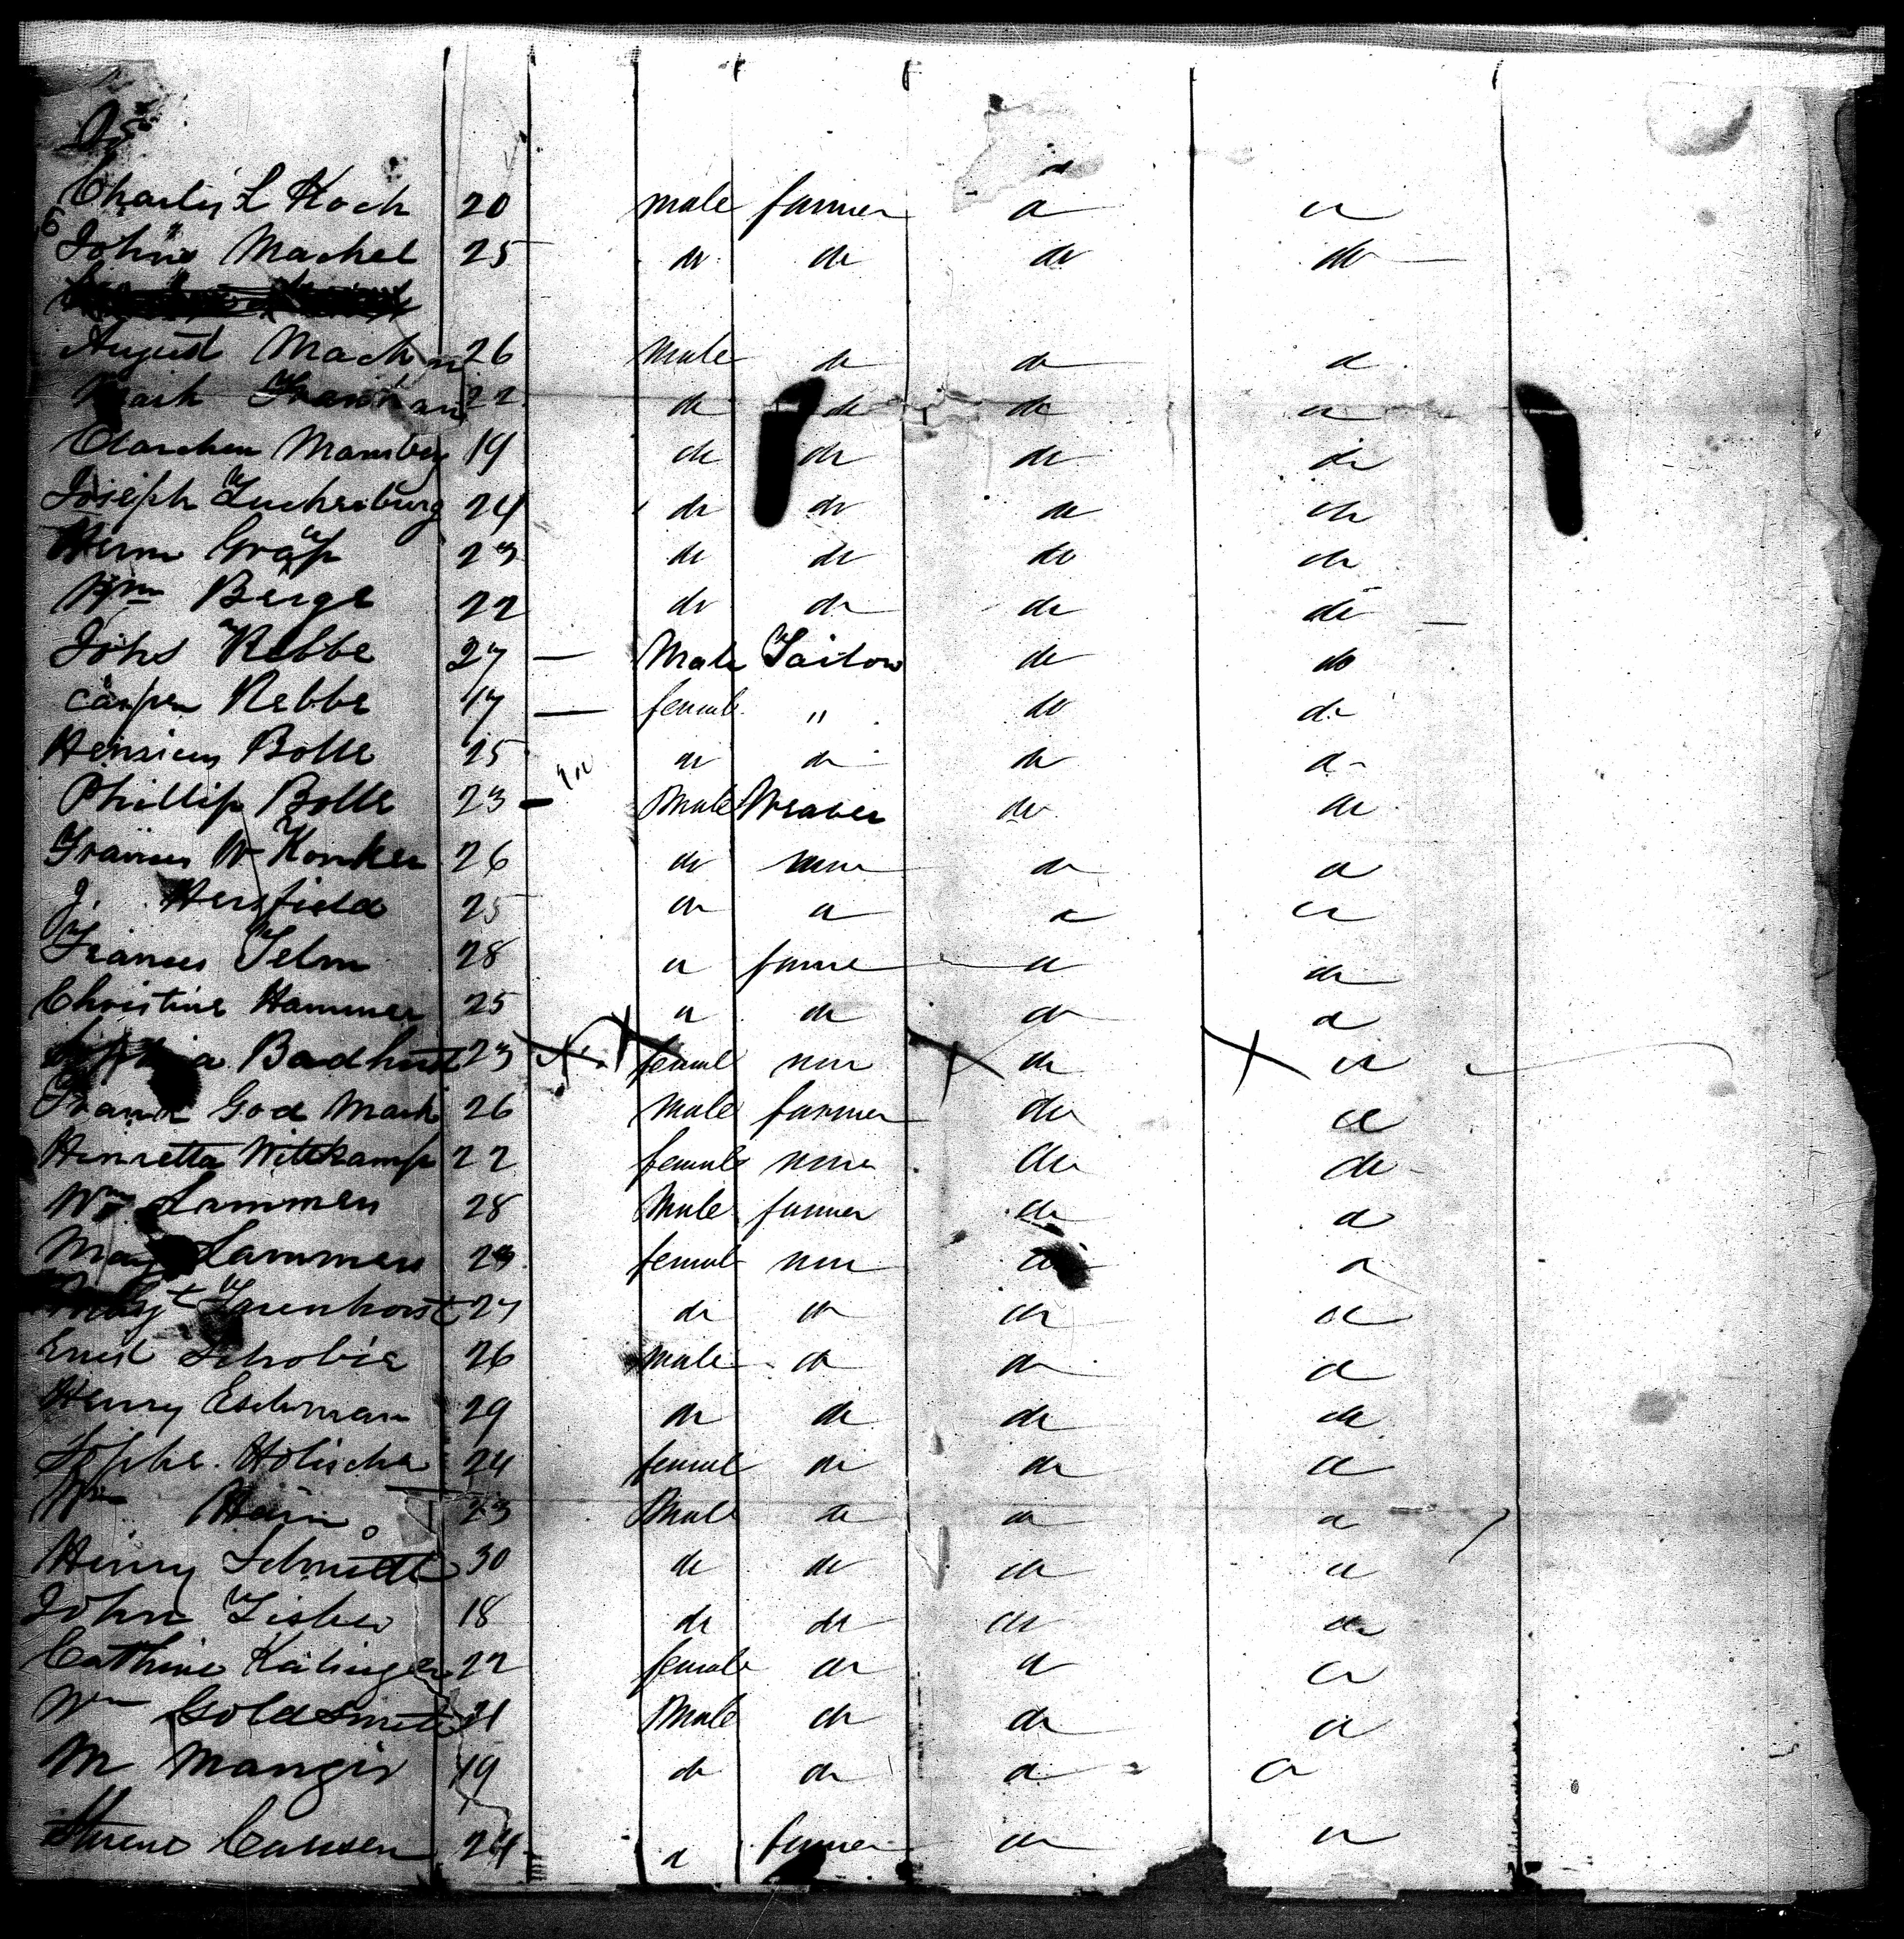 Charles L Koch 20 male farmer do do
6
Johns Machel 25 do do do do
August Machn 26 Male do do do
22 do do do do
Clarchen Mansberg 19 do do do do
Joseph Luchsiburg 24 do do do do
Herm Gräf 23 do do do do
Wm Berge 22 do do do do
Johs Rebbe 27 — Male Tailor do do
Casper Rebbe 17 — female " do do
Henricus Bolle 25 do do do do
Phillip Bolle 23 - Male Weaver do do
Frances W Konker 26 do none do do
J. Hersfield 25 do do do do
Frances Selm 28 do farmer do do
Christine Hammer 25 do do do do
Badhust 23 X X female none X do X do
God Mark 26 Male farmer do do
Henrietta Wittkamp 22 female none do do
Wm Lammers 28 Male farmer do do
Mary Lammers 23 female none do do
27 do do do do
Ernst Schobie 26 male do do do
Henry Eschman 29 do do do do
Sophe. Holischer 24 female do do do
Wm Hein 23 Male do do do
Henry Schmidt 30 do do do do
John Fisher 18 do do do do
Cathrine Kalinger 22 female do do do
Wm Goldsmith 21 Male do do do
M Mangis 19 do do do do
Causen 24 do farmer do do